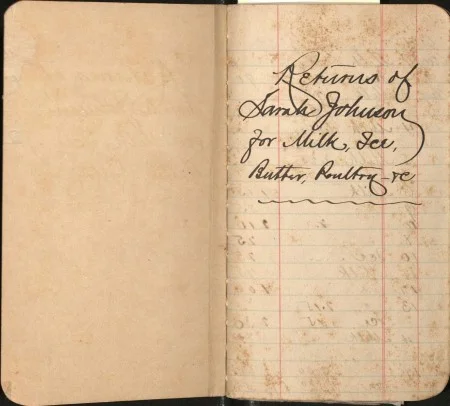 Returns of
Sarah Johnson
for Milk, Ice,
Butter, Poultry - &c